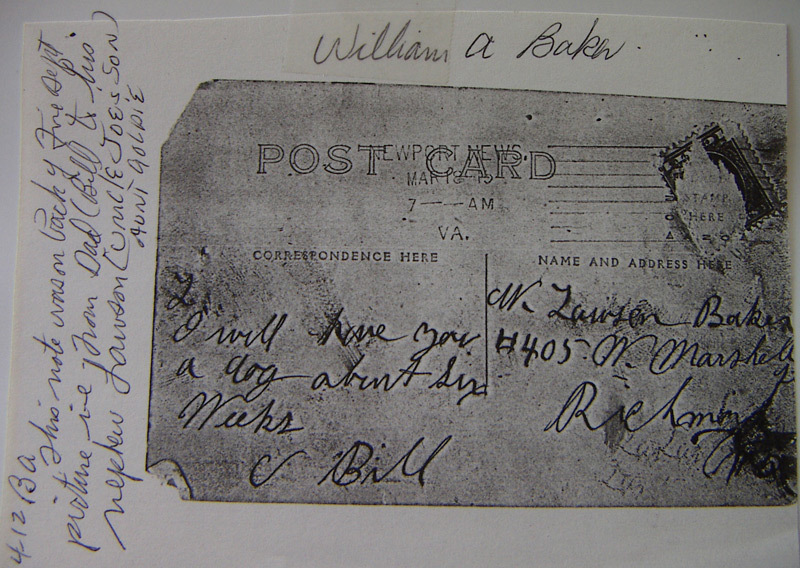 William A Baker
4-12 BA
This note was on back of Fire Dept
picture, ie, from Dad (Bill) to his
nephew Lawson (UNCLE JOE'S SON)
AUNT GOLDIE
POST CARD
NEWPORT NEWS
MAR 18
7 — AM
VA.
STAMP
HERE
CORRESPONDENCE HERE
NAME AND ADDRESS HERE
L.
I will have you
a dog about six
Weeks
Bill
W. Lawson Baker
#405 W. Marshall
Richmond